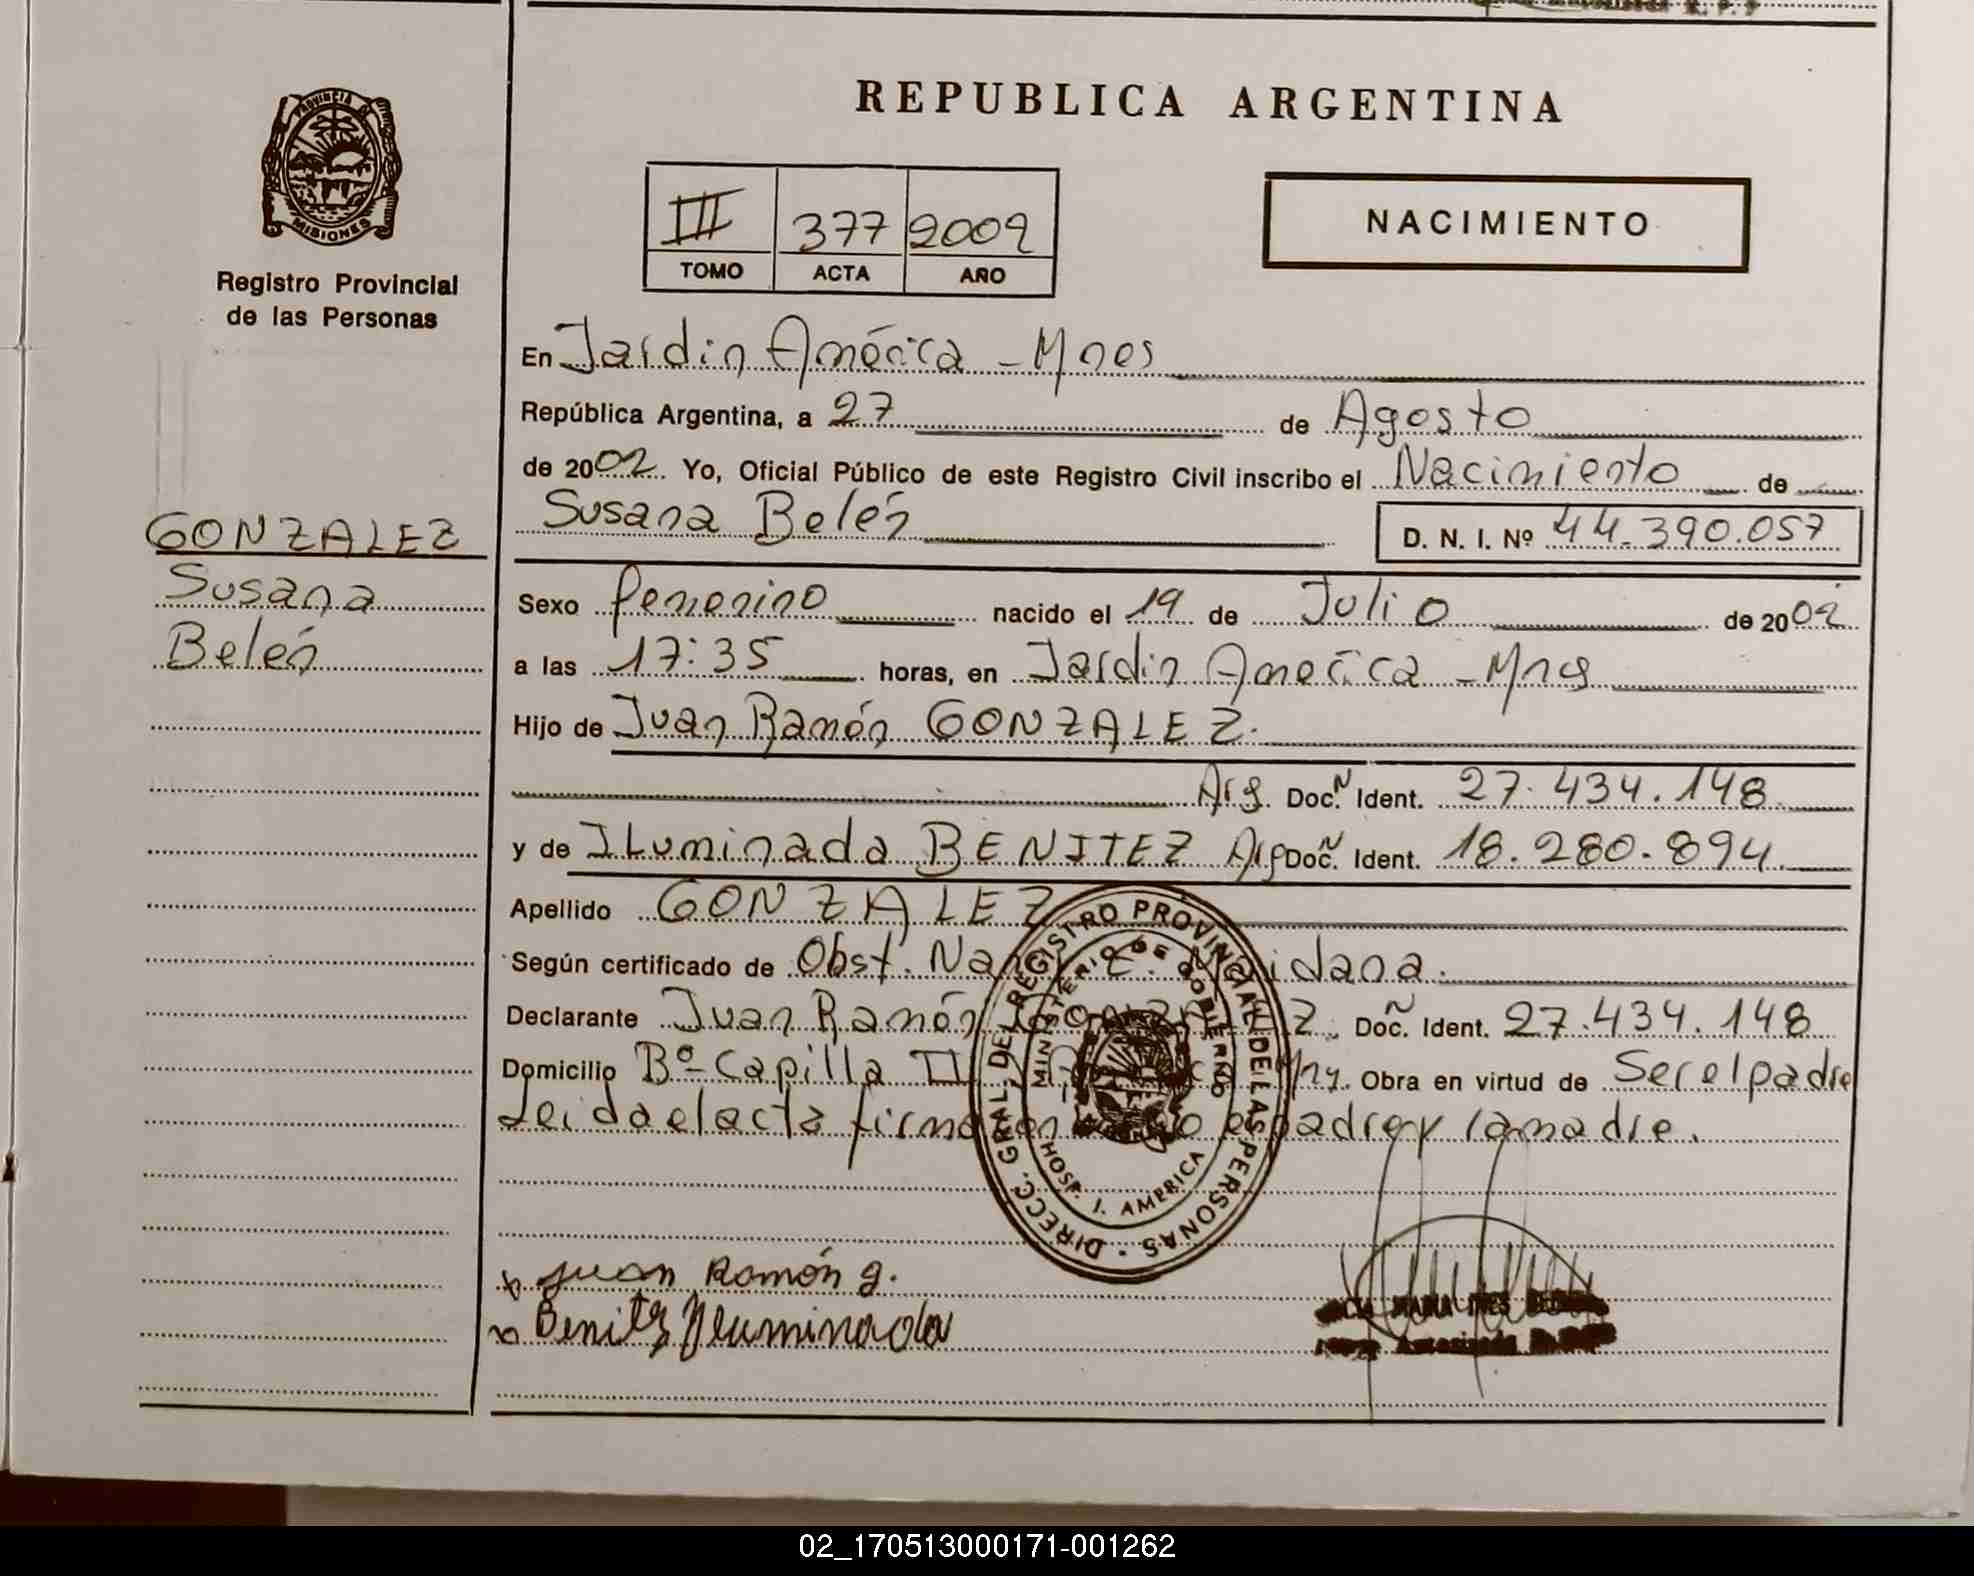 REPUBLICA ARGENTINA
PROVINCIA DE
MISIONES
Registro Provincial
de las Personas
III 377 2002
TOMO ACTA AÑO
NACIMIENTO
En Jardin América - Mnes
República Argentina, a 27 de Agosto
de 2002. Yo, Oficial Público de este Registro Civil inscribo el Nacimiento de
Susana Belén D. N. I. Nº 44.390.057
GONZALEZ
Susana
Belén
Sexo femenino nacido el 19 de Julio de 2002
a las 17:35 horas, en Jardin América - Mnes
Hijo de Juan Ramón GONZALEZ.
Arg. Doc. N Ident. 27.434.148
y de ILuminada BENITEZ Arg Doc. N Ident. 18.280.894
Apellido GONZALEZ
Según certificado de Obst.
Declarante Juan Ramón GONZALEZ Doc. N Ident. 27.434.148
Domicilio Bº Capilla II Obra en virtud de Ser el padre
Leida el acta firman el padre y la madre.
DIRECC. GRAL. DEL REGISTRO PROVINCIAL DE LAS PERSONAS
MINISTERIO DE GOBIERNO
HOSP. J. AMERICA
x Juan Ramón g.
x Benitez Iluminada
MARIA INES
02_170513000171-001262